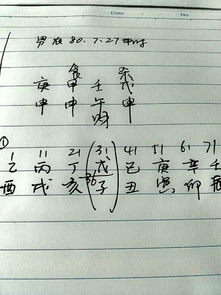 男 农 80.7.27 申时
食 杀
庚 甲 壬 戊
申 申 午 申
时
①
1 11 21 31 41 51 61 71
乙 丙 丁 36 戊 己 庚 辛 壬
酉 戌 亥 子 丑 寅 卯 辰